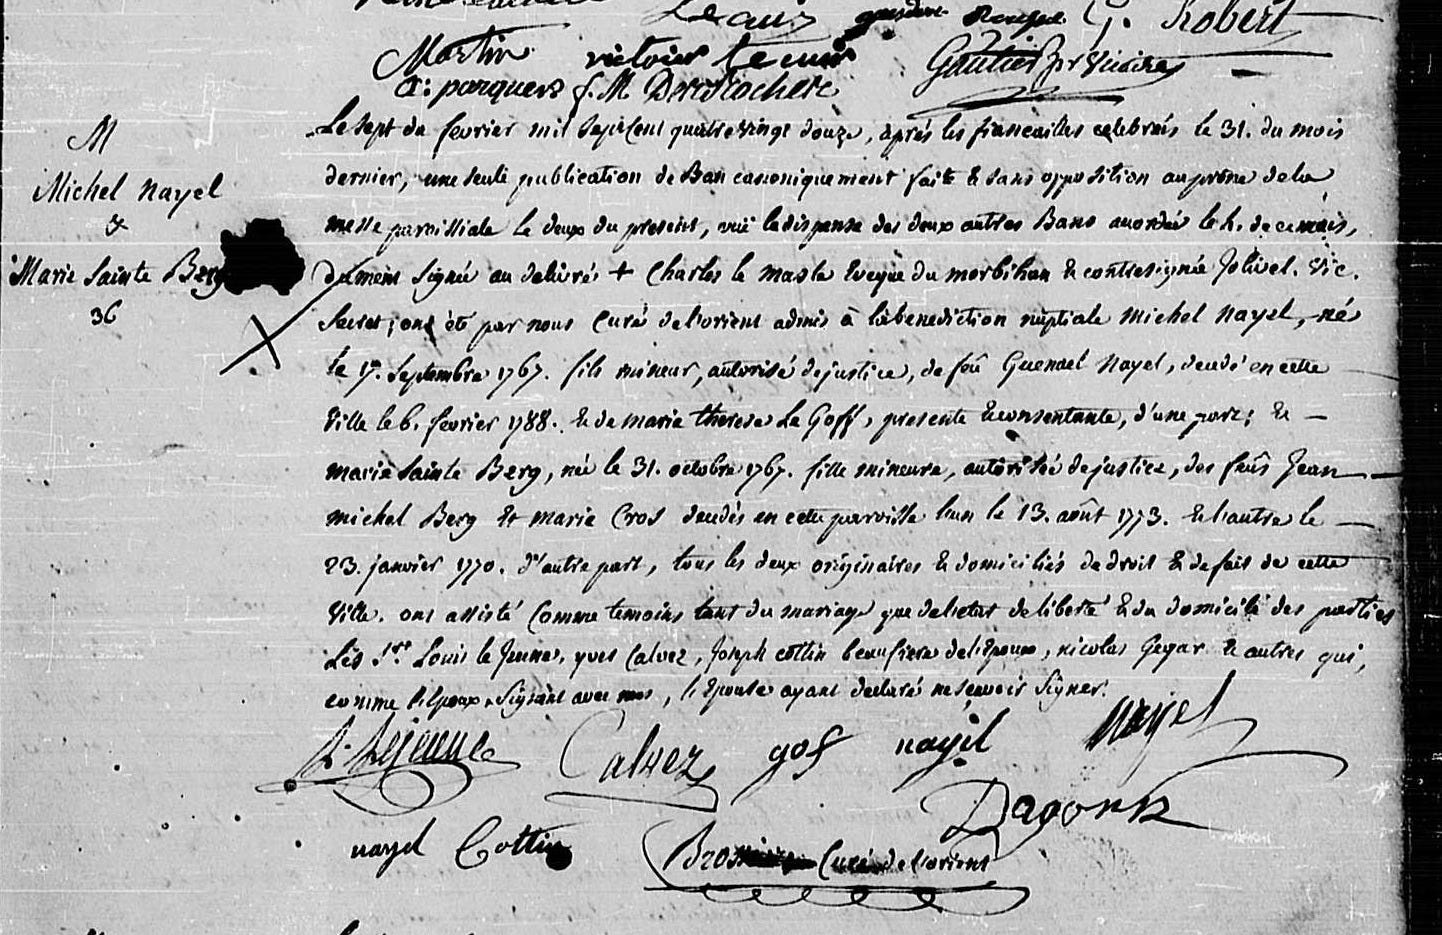 G. Robert
Martin victoire Lecuir Gautier pr Vicaire
M
Michel Nayel
&
Marie Sainte Berg
36
Le sept de fevrier mil sept cent quatre vingt douze, après les fiancailles celebrés le 31. du mois
dernier, une seule publication de Ban canoniquement faite & sans opposition au prône de la
messe paroissiale le deux du present, vuë la dispense des deux autres Bans accordée le 4. de ce mois,
dument signée au delivré + Charles le Masle Eveque du morbihan & contresignée Jolivel. Vic.
Secret; ont été par nous Curé de l'orient admis à la benediction nuptiale Michel Nayel, né
le 1er. Septembre 1767. fils mineur, autorisé de justice, de feû Guenael Nayel, decedé en cette
Ville le 6. fevrier 1788. & de marie therese Le Goff, presente & consentante, d'une part; &
marie Sainte Berg, née le 31. octobre 1767. fille mineure, autorisée de justice, des feûs Jean
michel Berg & marie Cros decedés en cette paroisse l'un le 13. août 1773. & l'autre le
23. janvier 1770. d'autre part, tous les deux originaires & domiciliés de droit & de fait de cette
Ville. ont assisté Comme temoins tant du mariage que de l'etat de liberté & du domicile des parties
Les Srs. Louis le Jeune, yves Calvez, Joseph cottin beaufrere de l'Epoux, nicolas Gegar & autres qui,
comme l'Epoux, Signent avec nous, l'Epouse ayant declaré ne sçavoir Signer.
L. Lejeune Calvez gof nayel Nayel
Dagorn
nayel Cottin Curé de l'orient